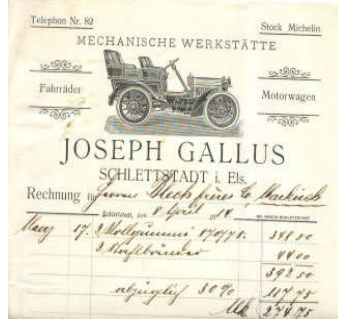 Telephon Nr. 82
Stock Michelin
MECHANISCHE WERKSTÄTTE
Fahrräder
Motorwagen
JOSEPH GALLUS
SCHLETTSTADT i. Els.
Rechnung für Herren Bleck frères
Schlettstadt, den 8 April
März 17. 2
348.50
2
44.00
392.50
abzüglich 30%
117.75
Mk 274.75